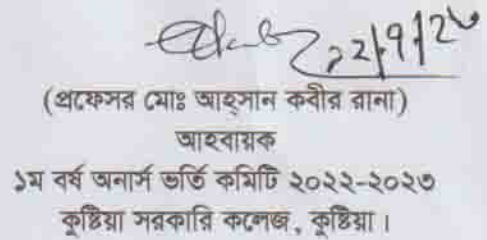 ২২/৭/২৩
(প্রফেসর মোঃ আহসান কবীর রানা)
আহবায়ক
১ম বর্ষ অনার্স ভর্তি কমিটি ২০২২-২০২৩
কুষ্টিয়া সরকারি কলেজ, কুষ্টিয়া।